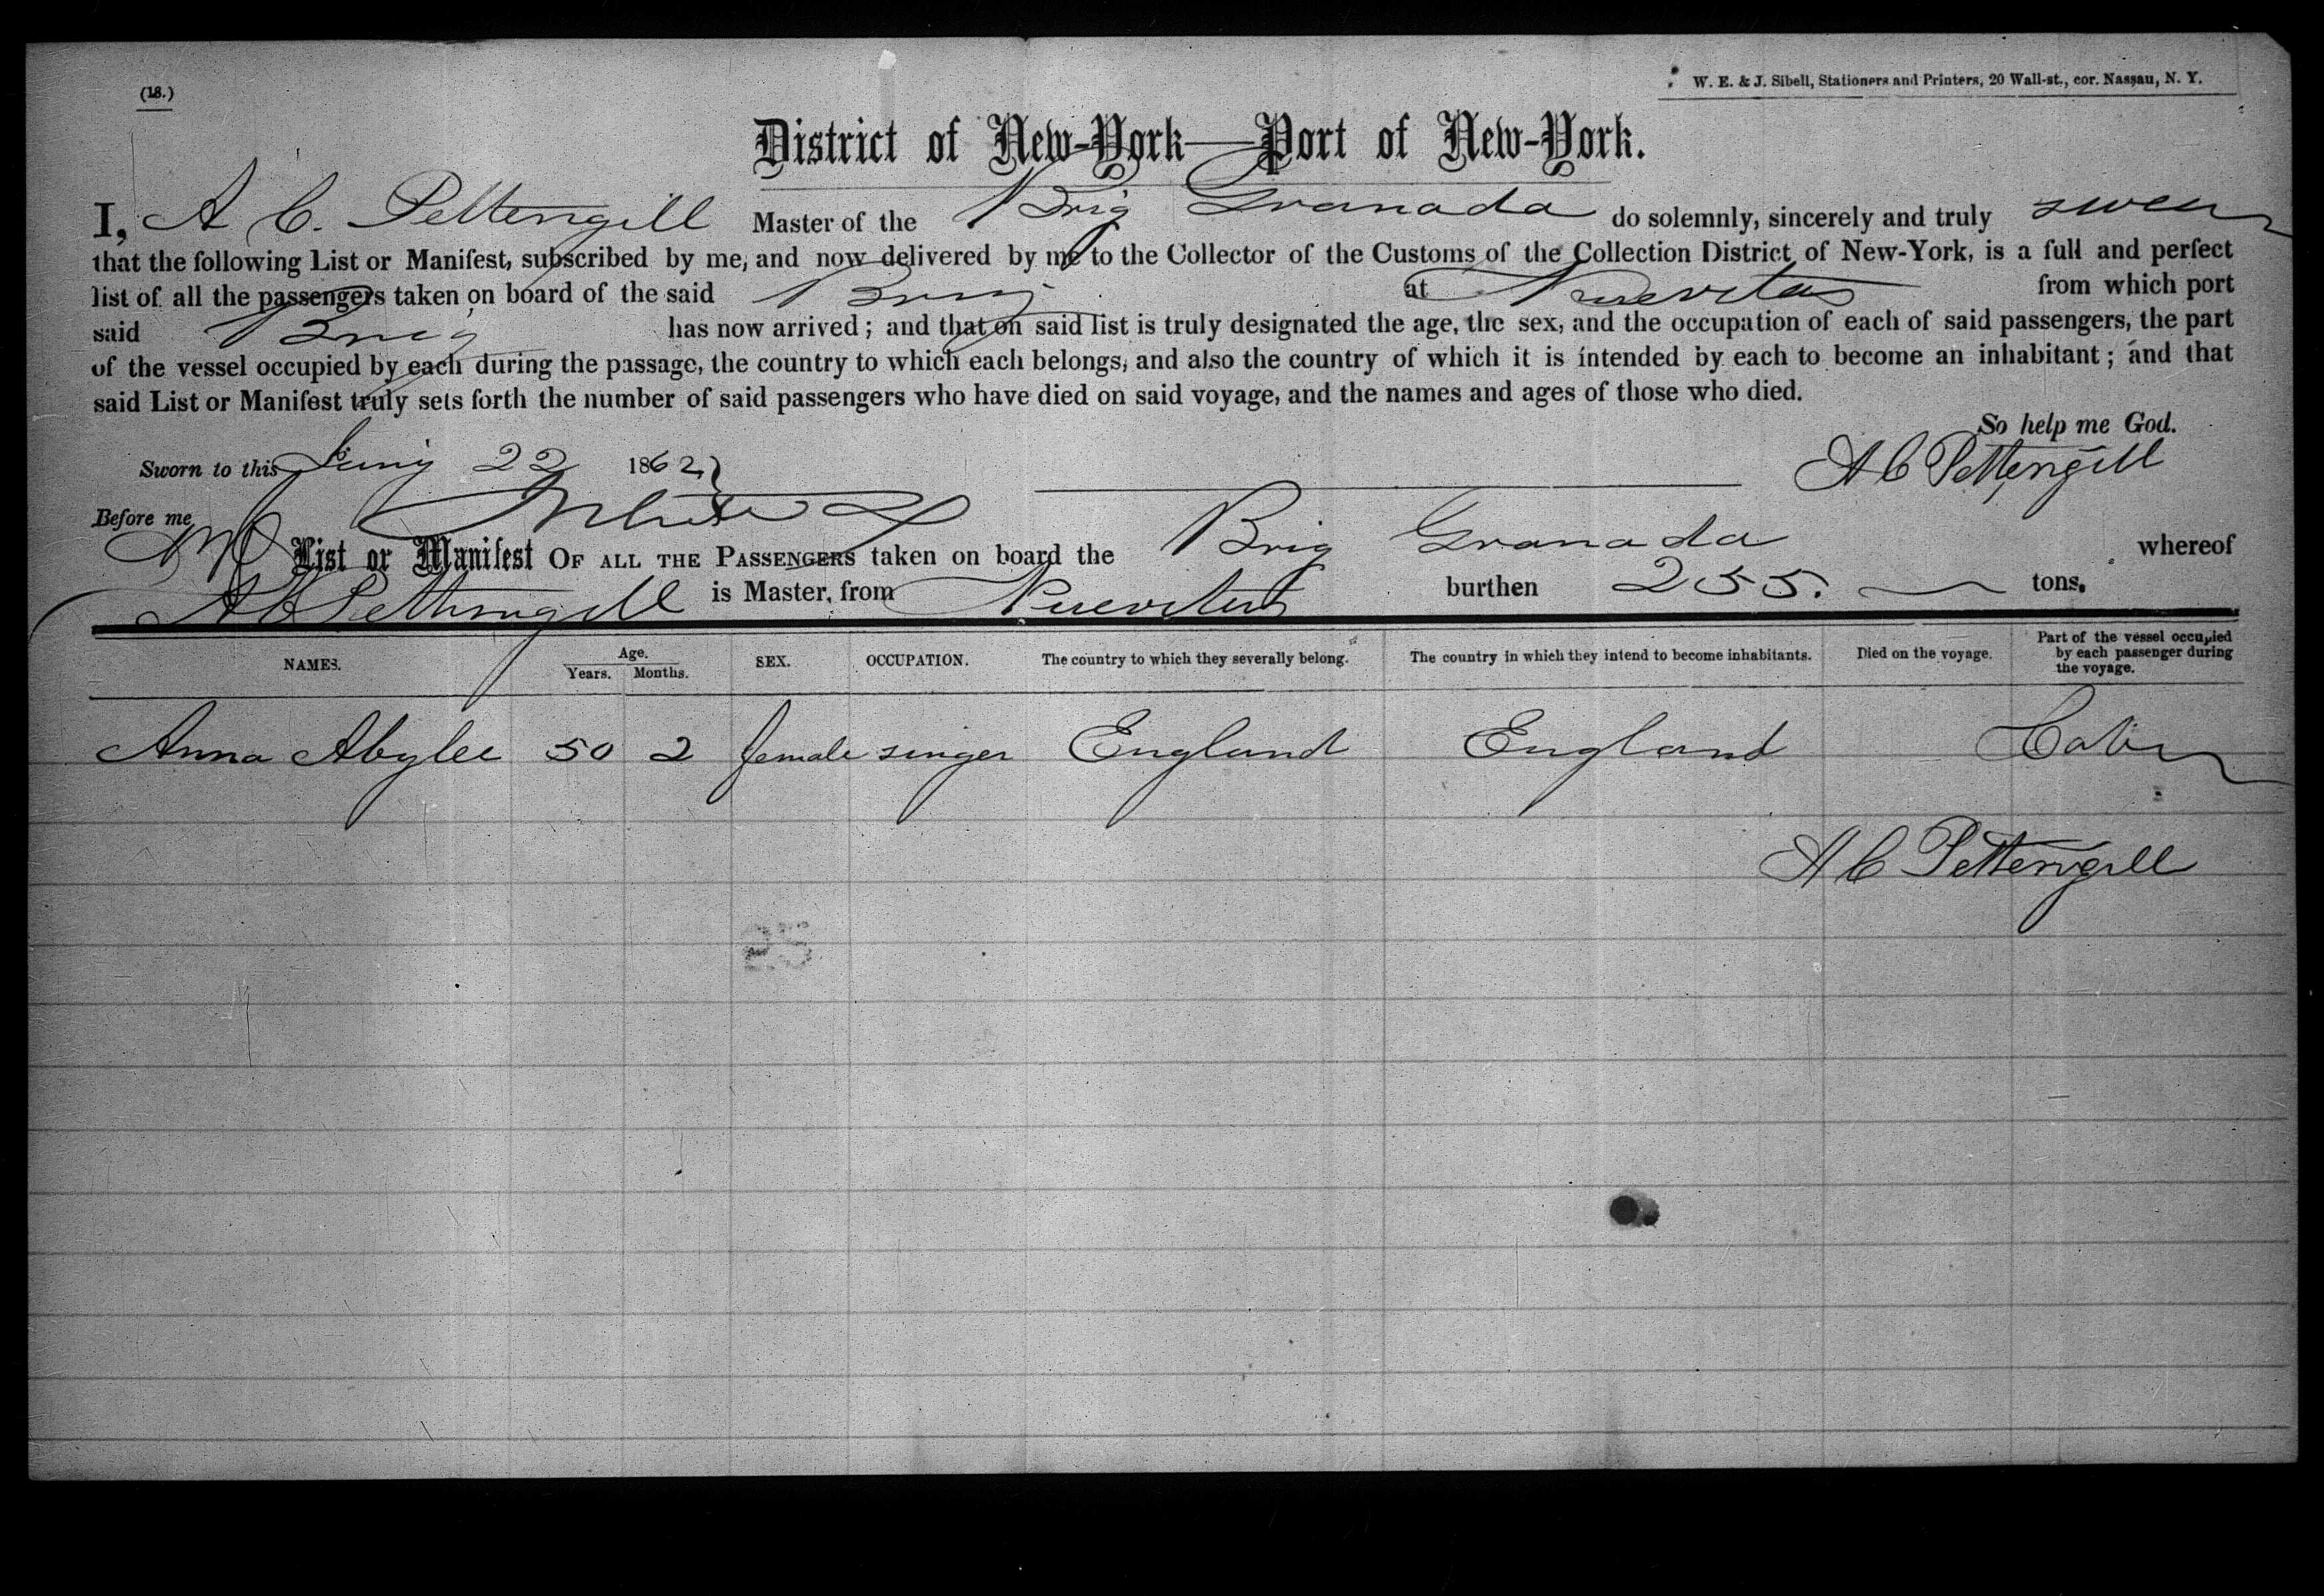 (18.)
W. E. & J. Sibell, Stationers and Printers, 20 Wall-st., cor. Nassau, N. Y.
District of New-York—Port of New-York.
I, A C. Pettengill Master of the Brig Granada do solemnly, sincerely and truly swear
that the following List or Manifest, subscribed by me, and now delivered by me to the Collector of the Customs of the Collection District of New-York, is a full and perfect
list of all the passengers taken on board of the said Brig at Nuevitas from which port
said Brig has now arrived; and that on said list is truly designated the age, the sex, and the occupation of each of said passengers, the part
of the vessel occupied by each during the passage, the country to which each belongs, and also the country of which it is intended by each to become an inhabitant; and that
said List or Manifest truly sets forth the number of said passengers who have died on said voyage, and the names and ages of those who died.
So help me God.
Sworn to this 22 1862
A C Pettengill
Before me
List or Manifest OF ALL THE PASSENGERS taken on board the Brig Granada whereof
A C Pettengill is Master, from Nuevitas burthen 255. tons.
NAMES. Age. Years. Months. SEX. OCCUPATION. The country to which they severally belong. The country in which they intend to become inhabitants. Died on the voyage. Part of the vessel occupied by each passenger during the voyage.
Anna Abylee 50 2 female singer England England Cabin
A C Pettengill